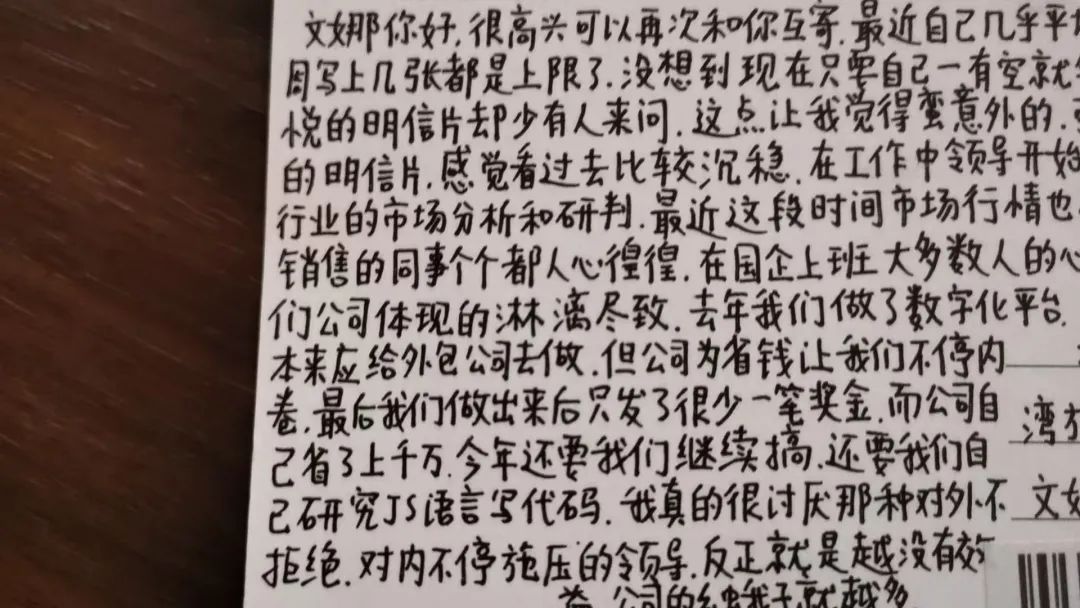 文娜你好.很高兴可以再次和你互寄.最近自己几乎平均
周写上几张都是上限了.没想到现在只要自己一有空就
悦的明信片却少有人来问.这点让我觉得蛮意外的.
的明信片.感觉看过去比较沉稳.在工作中领导开始
行业的市场分析和研判.最近这段时间市场行情也
销售的同事个个都人心徨徨.在国企上班大多数人的心
们公司体现的淋漓尽致.去年我们做了数字化平台.
本来应给外包公司去做.但公司为省钱让我们不停内
卷.最后我们做出来后只发了很少一笔奖金.而公司自
己省了上千万.今年还要我们继续搞.还要我们自
己研究JS语言写代码.我真的很讨厌那种对外不
拒绝.对内不停施压的领导.反正就是越没有效
卷.公司的幺蛾子就越多
湾
文